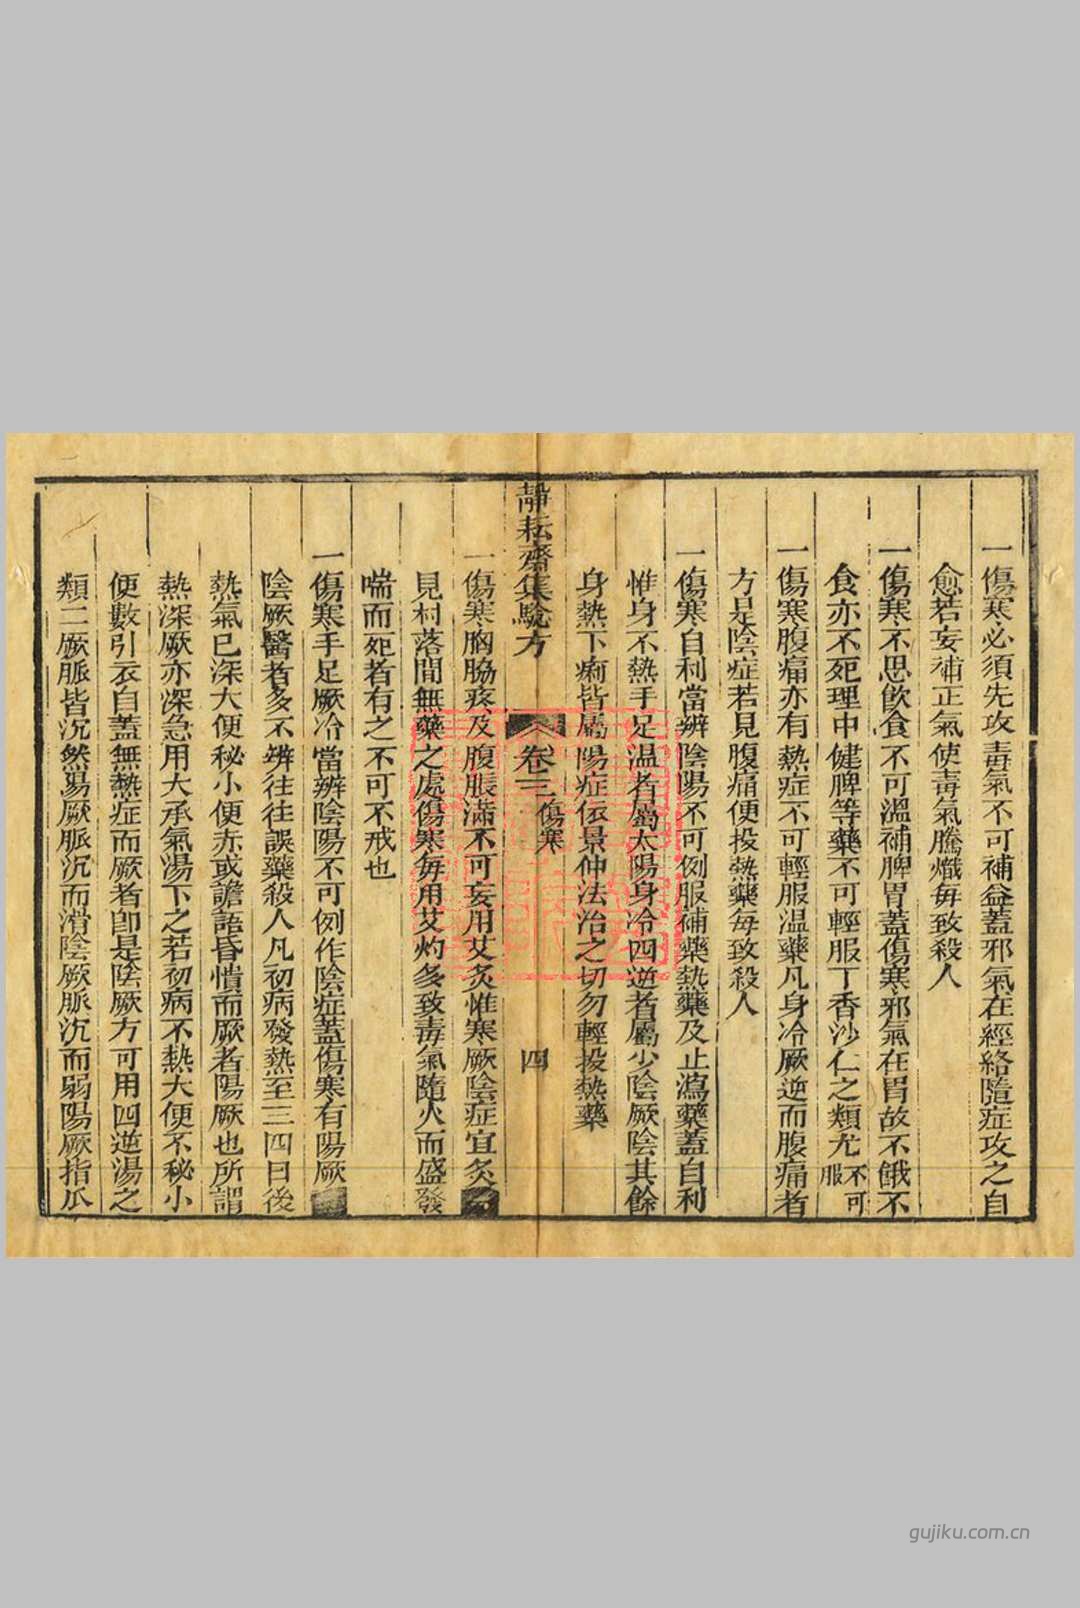 一傷寒必須先攻毒氣不可補益蓋邪氣在經絡隨症攻之自
愈若妄補正氣使毒氣騰熾每致殺人
一傷寒不思飲食不可溫補脾胃蓋傷寒邪氣在胃故不餓不
食亦不死理中健脾等藥不可輕服丁香沙仁之類尤不可服
一傷寒腹痛亦有熱症不可輕服温藥凡身冷厥逆而腹痛者
方是陰症若見腹痛便投熱藥每致殺人
一傷寒自利當辨陰陽不可例服補藥熱藥及止瀉藥蓋自利
惟身不熱手足温者屬太陽身冷四逆者屬少陰厥陰其餘
身熱下痢皆屬陽症依景仲法治之切勿輕投熱藥
靜耘齋集驗方
卷三
傷寒
四
一傷寒胸脇疼及腹脹滿不可妄用艾灸惟寒厥陰症宜灸
見村落間無藥之處傷寒每用艾灼多致毒氣隨火而盛發
喘而死者有之不可不戒也
一傷寒手足厥冷當辨陰陽不可例作陰症蓋傷寒有陽厥
陰厥醫者多不辨往往誤藥殺人凡初病發熱至三四日後
熱氣已深大便秘小便赤或譫語昏憒而厥者陽厥也所謂
熱深厥亦深急用大承氣湯下之若初病不熱大便不秘小
便數引衣自蓋無熱症而厥者卽是陰厥方可用四逆湯之
類二厥脈皆沉然昜厥脈沉而滑陰厥脈沉而弱陽厥指爪
gujiku.com.cn